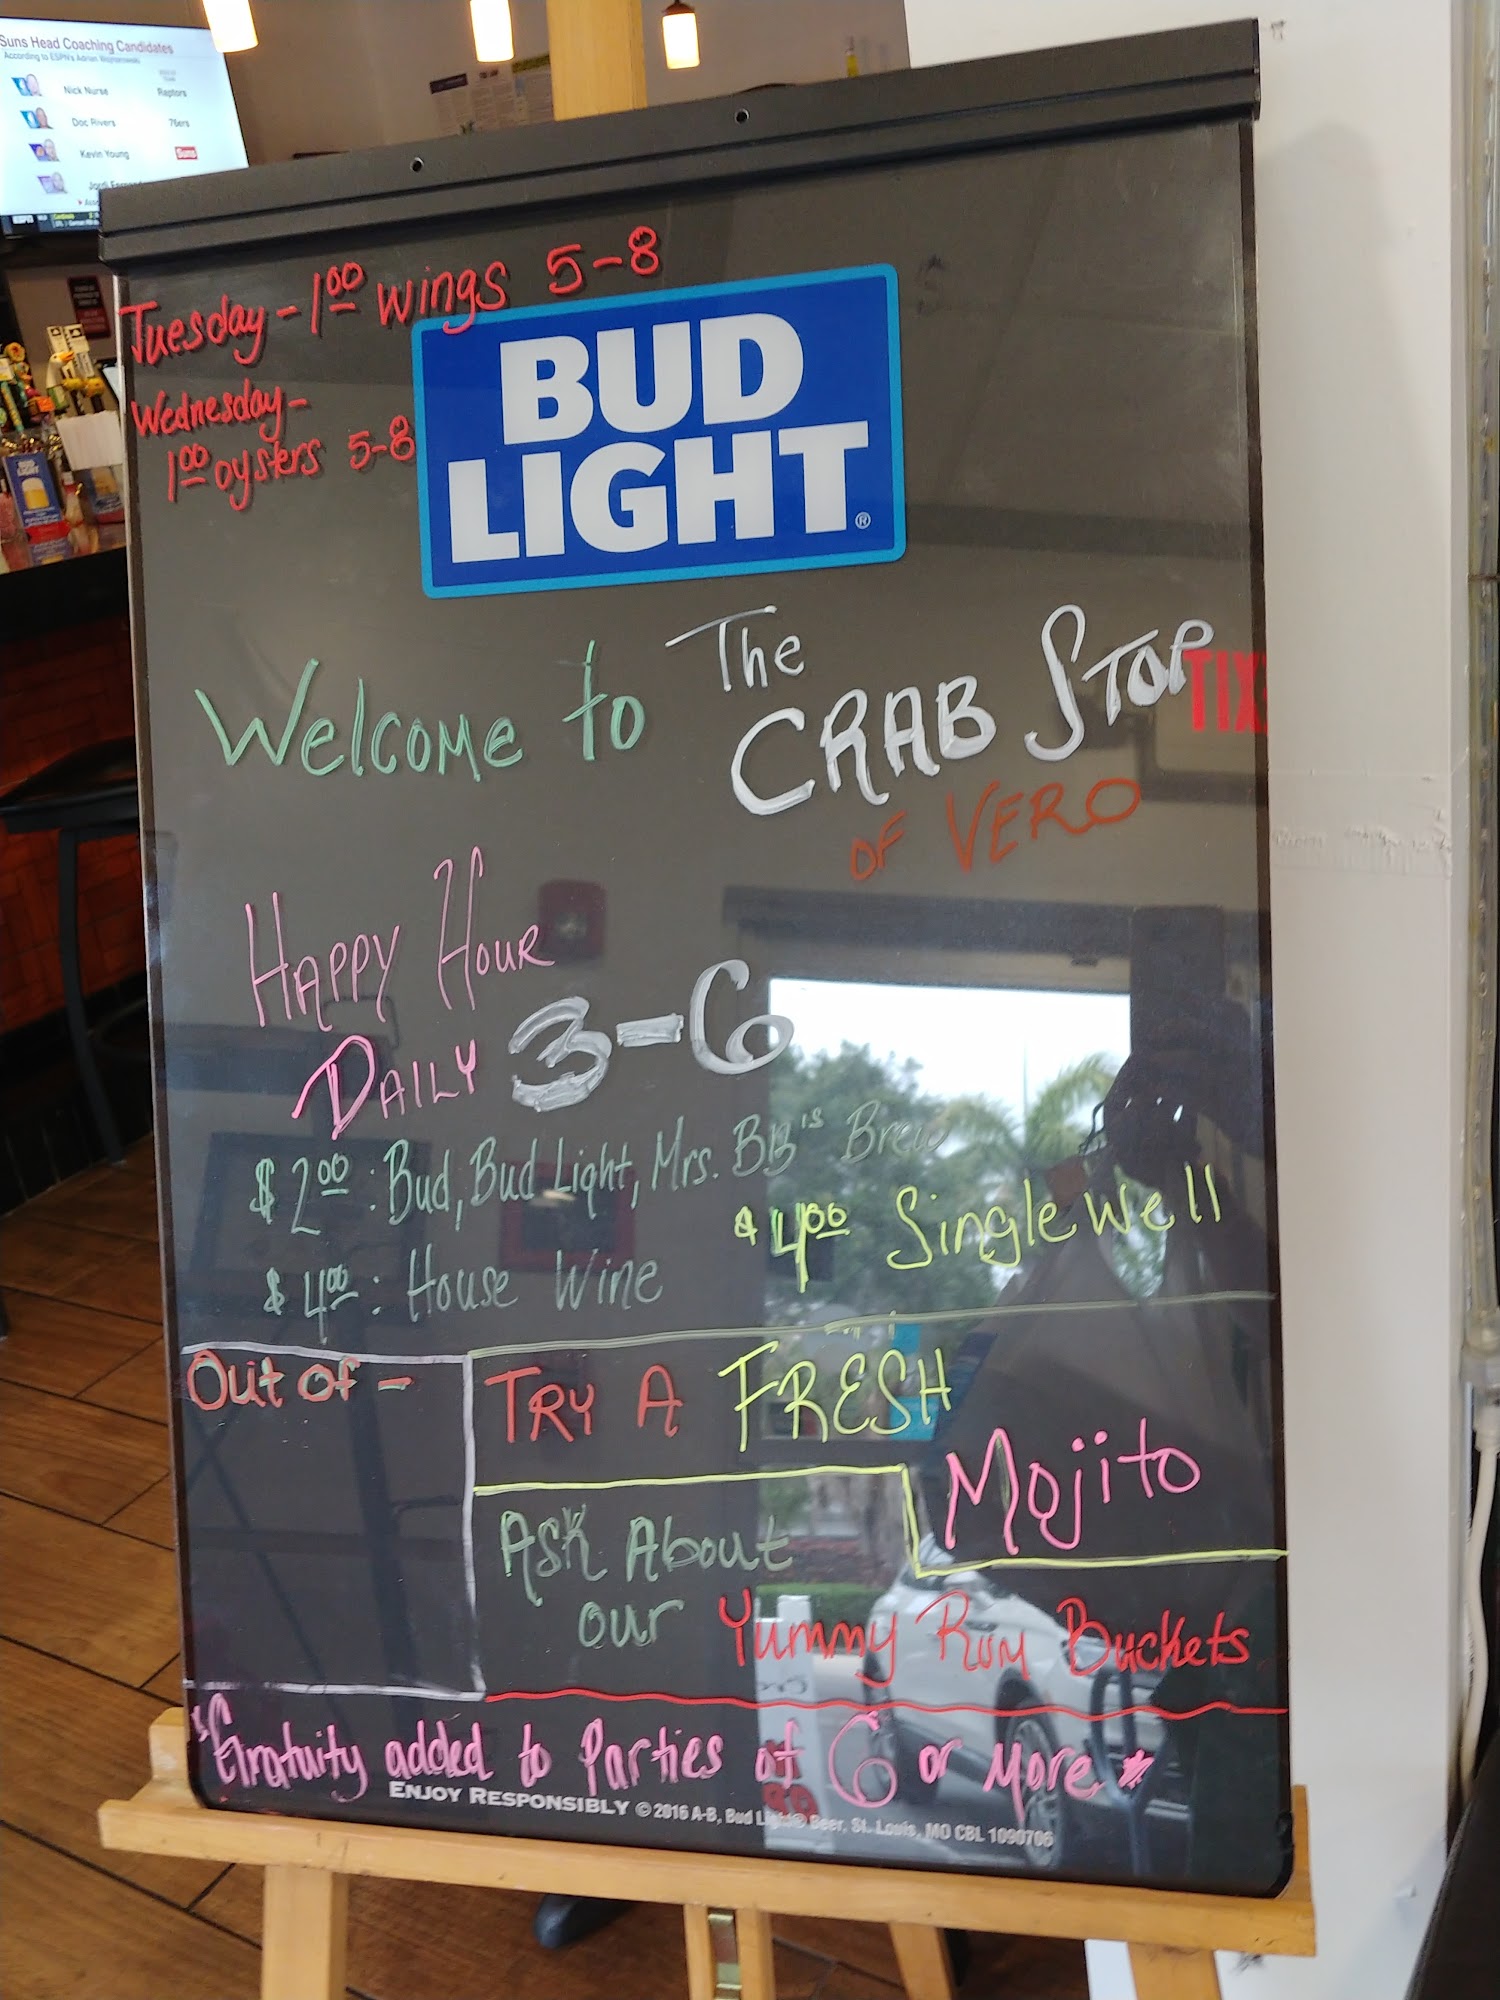 Suns Head Coaching Candidates
According to ESPN's Adrian Wojnarowski
Nick Nurse Raptors
Doc Rivers 76ers
Kevin Young Suns
Jordi
ESPN
Tuesday - 1.00 wings 5-8
Wednesday -
1.00 oysters 5-8
BUD
LIGHT®
Welcome to The
CRAB STOP
OF VERO
TIX
HAPPY HOUR
DAILY 3-6
$2.00: Bud, Bud Light, Mrs. BB's Brew
$4.00 Single Well
$4.00: House Wine
Out of -
TRY A FRESH
Mojito
ASK About
our Yummy Rum Buckets
*Gratuity added to Parties of 6 or more *
ENJOY RESPONSIBLY © 2016 A-B, Bud Light® Beer, St. Louis, MO CBL 1090706